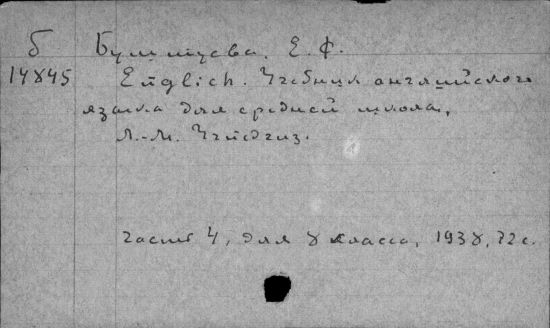 Б Бушуева. Е. Ф.
14845 English. Учебник английского
языка для средней школы,
Л.-М. Учпедгиз.
Часть 4, для 8 класса, 1938, 72 с.